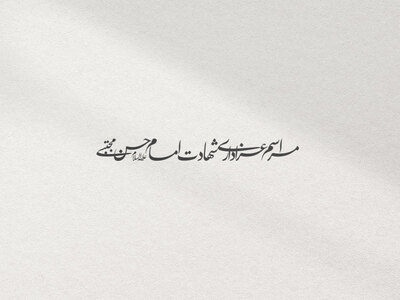 مراسم عزاداری شهادت امام حسن مجتبی علیه‌السلام